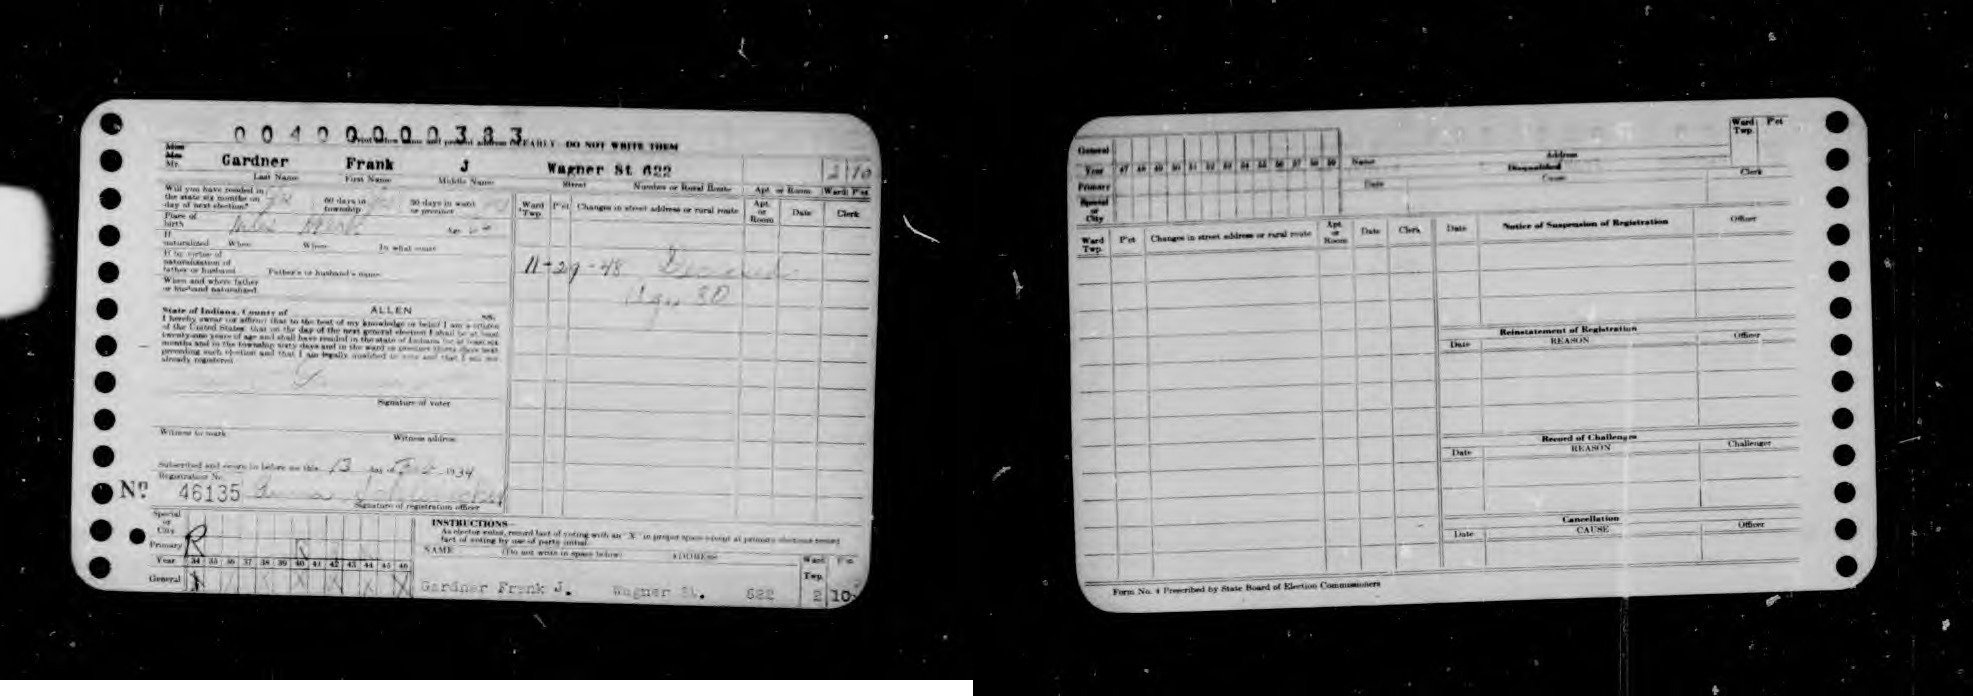 0040000000383
EARLY DO NOT WRITE THEM
Miss
Mrs.
Mr. Gardner Frank J Wagner St 622 2 10
Last Name First Name Middle Name Street Number or Rural Route Apt. or Room Ward P'ct
Will you have resided in
the state six months on
day of next election? 60 days in
township 30 days in ward
or precinct
Place of
birth Age
If
naturalized When Where In what court
If by virtue of
naturalization of
father or husband Father's or husband's name
When and where father
or husband naturalized
State of Indiana, County of ALLEN SS.
I hereby swear (or affirm) that to the best of my knowledge or belief I am a citizen
of the United States; that on the day of the next general election I shall be at least
twenty-one years of age and shall have resided in the state of Indiana for at least six
months and in the township sixty days and in the ward or precinct thirty days next
preceding such election and that I am legally qualified to vote and that I am not
already registered
Signature of voter
Witness to mark Witness address
Subscribed and sworn to before me this 13 day of 1934
Registration No.
No. 46135
Signature of registration officer
Ward
Twp. P'ct Changes in street address or rural route Apt.
or
Room Date Clerk
11-29-48 Deceased
Age 80
Special
or
City
Primary R
Year 34 35 36 37 38 39 40 41 42 43 44 45 46
General X X X X X X
INSTRUCTIONS
As elector votes, record fact of voting with an "X" in proper space except at primary elections record
fact of voting by use of party initial.
NAME (Do not write in space below) ADDRESS Ward
Twp. P'ct
Gardner Frank J. Wagner St. 622 2 10
General
Year 47 48 49 50 51 52 53 54 55 56 57 58 59
Primary
Special
or
City
Name Address Ward
Twp. P'ct
Disqualified
Date Cause Clerk
Ward
Twp. P'ct Changes in street address or rural route Apt.
or
Room Date Clerk
Date Notice of Suspension of Registration Officer
Reinstatement of Registration
Date REASON Officer
Record of Challenges
Date REASON Challenger
Cancellation
Date CAUSE Officer
Form No. 4 Prescribed by State Board of Election Commissioners